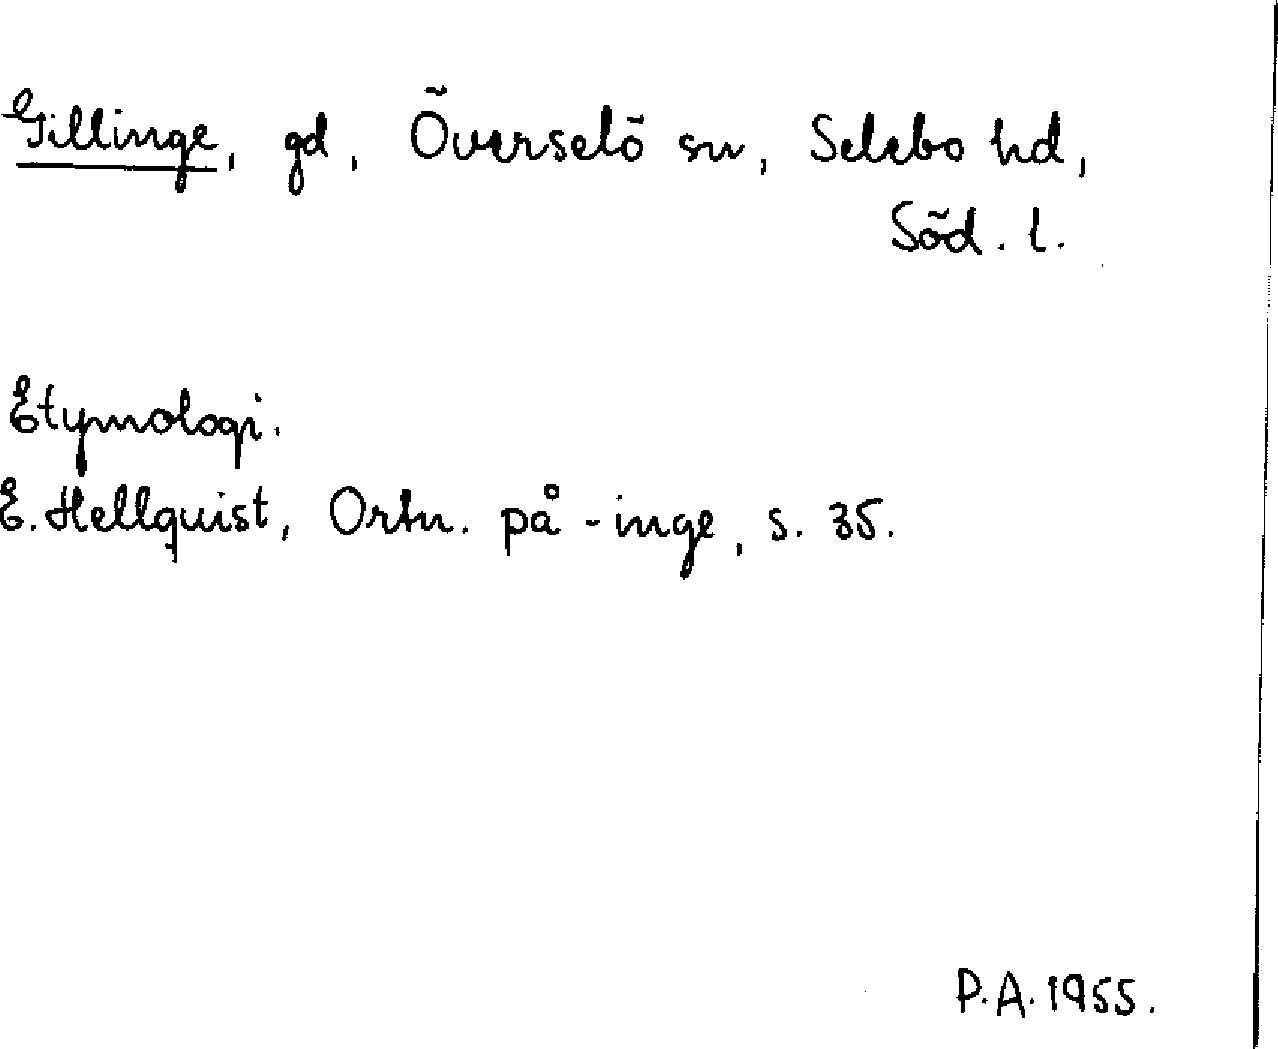 Gillinge, gd, Överselö sn, Selebo hd,
Söd. l.
Etymologi.
E. Hellquist, Ortn. på -inge, s. 35.
P.A. 1955.